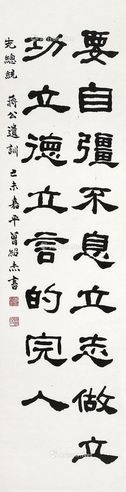 要自彊不息立志做立
功立德立言的完人
先總統 蔣公遺訓 己未嘉平曾紹杰書